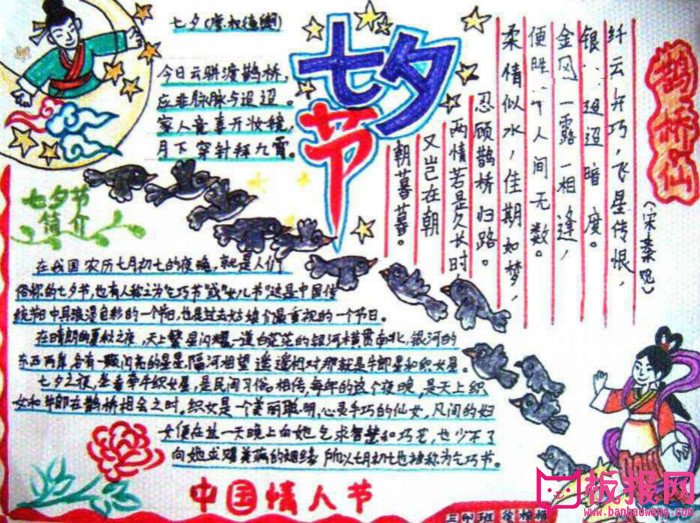 七夕节
七夕(唐·权德舆)
今日云骈渡鹊桥,
应非脉脉与迢迢。
家人竟喜开妆镜,
月下穿针拜九霄。
鹊桥仙
(宋秦观)
纤云弄巧,飞星传恨,
银 迢迢暗度。
金风一露一相逢,
便胜 人间无数。
柔情似水,佳期如梦,
忍顾鹊桥归路。
两情若是久长时
又岂在朝
朝暮暮。
七夕节
简介
在我国农历七月初七的夜晚,就是人们
俗称的七夕节,也有人称之为"乞巧节"或"女儿节"这是中国传
统节日中具浪漫色彩的一个节日,也是过去姑娘们最重视的一个节日。
在晴朗的夏秋之夜,天上繁星闪耀一道白茫茫的银河横贯南北,银河的
东西两岸,各有一颗闪亮的星星,隔河相望遥遥相对那就是牛郎星和织女星。
七夕之夜,坐看牵牛织女星,是民间习俗。相传,每年的这个夜晚,是天上织
女和牛郎在鹊桥相会之时,织女是个美丽聪明,心灵手巧的仙女,凡间的妇
女便在这一天晚上向她乞求智慧和巧艺,也少不了
向她求赐美满的姻缘 所以七月初七也被称为乞巧节。
中国情人节
板报网
www.banbaowang.com